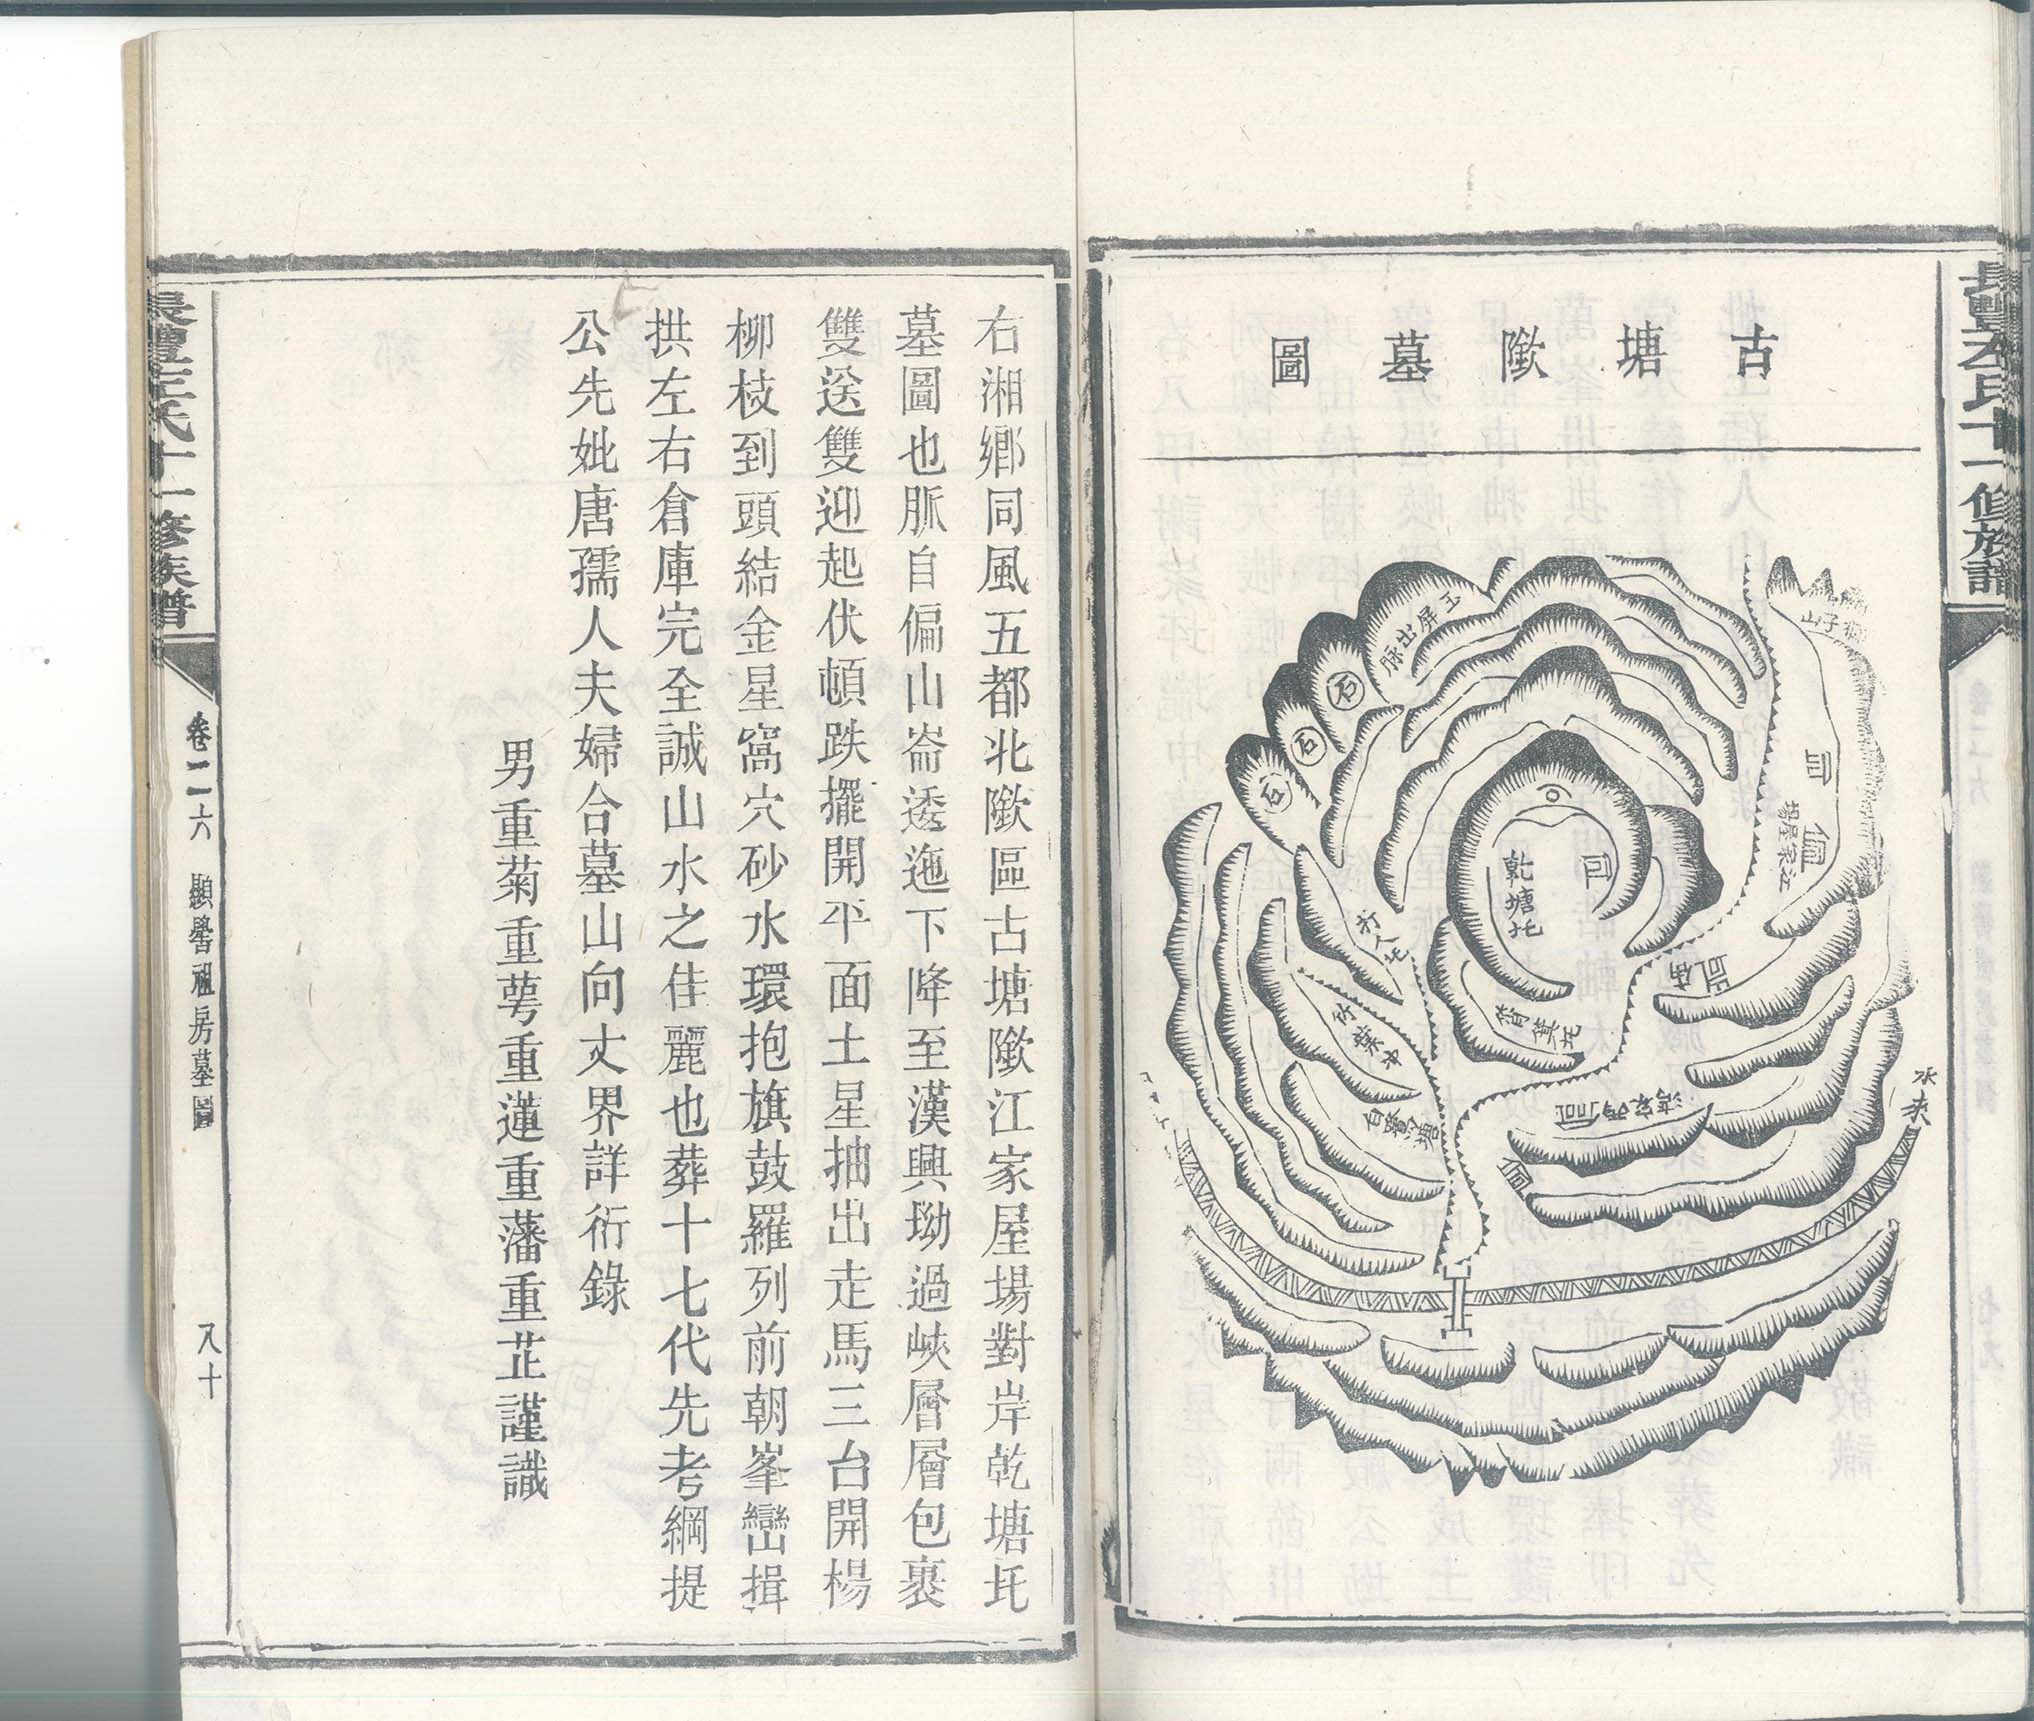 古塘墘墓圖
玉屏出脉
石
石
石
乾塘圫
打人圫
竹葉冲
江家屋場
水來
右湘鄉同風五都北墘區古塘墘江家屋場對岸乾塘圫
墓圖也脈自偏山崙逶迤下降至漢興坳過峽層層包裹
雙送雙迎起伏頓跌擺開平面土星抽出走馬三台開楊
柳枝到頭結金星窩穴砂水環抱旗鼓羅列前朝峯巒揖
拱左右倉庫完全誠山水之佳麗也葬十七代先考綱提
公先妣唐孺人夫婦合墓山向丈界詳衍錄
男重菊重萼重蓮重藩重芷謹識
左氏十一修族譜
卷二六 顯譽祖房墓圖
八十